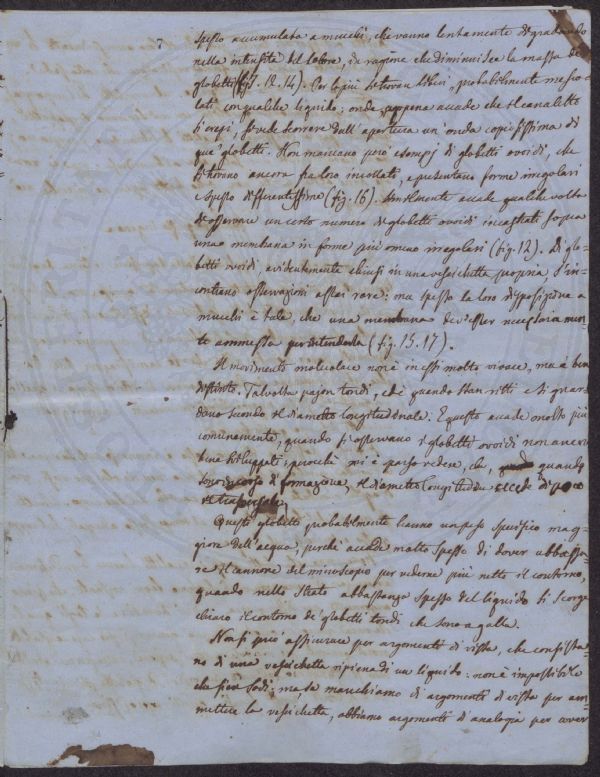 7
spesso accumulata a mucchi, che vanno lentamente degradando
nella intensità del colore, in ragione che diminuisce la massa de'
globetti (fig. 12. 14). Per lo più si trovan liberi, probabilmente mesco-
lati con qualche liquido; onde, appena accade che il canaletto
si crepi, si vede scorrere dall'apertura un'onda copiosissima di
que' globetti. Non mancano però esempj di globetti ovoidi, che
si trovano ancora fra loro incollati, e presentano forme irregolari
e spesso differentissime (fig. 16). Similmente accade qualche volta
di osservare un certo numero di globetti ovoidi incastrati sopra
una membrana in forme più o meno irregolari (fig. 12). Di glo-
betti ovoidi, evidentemente chiusi in una vessichetta propria s'in-
contrano osservazioni assai rare: ma spesso la loro disposizione a
mucchi è tale, che una membrana dev'esser necessariamen-
te ammessa per intenderla (fig. 15. 17).
Il movimento molecolare non è in essi molto vivace, ma è ben
distinto. Talvolta pajon tondi, ed è quando stan ritti e si guar-
dano secondo il diametro longitudinale. E questo accade molto più
comunemente, quando si osservano i globetti ovoidi non ancor
bene sviluppati; perochè mi è parso vedere, che, quando
sono in corso di formazione, il diametro longitudin. eccede di poco
il trasversale.
Questi globetti probabilmente hanno un peso specifico mag-
giore dell'acqua; perchè accade molto spesso di dover abbassa-
re il cannone del microscopio per vederne più netto il contorno,
quando nello strato abbastanza spesso del liquido si scorge
chiaro il contorno de' globetti tondi che sono a galla.
Non si può assicurare per argomenti di vista, che consista-
no di una vessichetta ripiena di un liquido: non è impossibile
che sien sodi; ma se manchiamo di argomenti di vista per am-
mettere la vessichetta, abbiamo argomenti d'analogia per cre